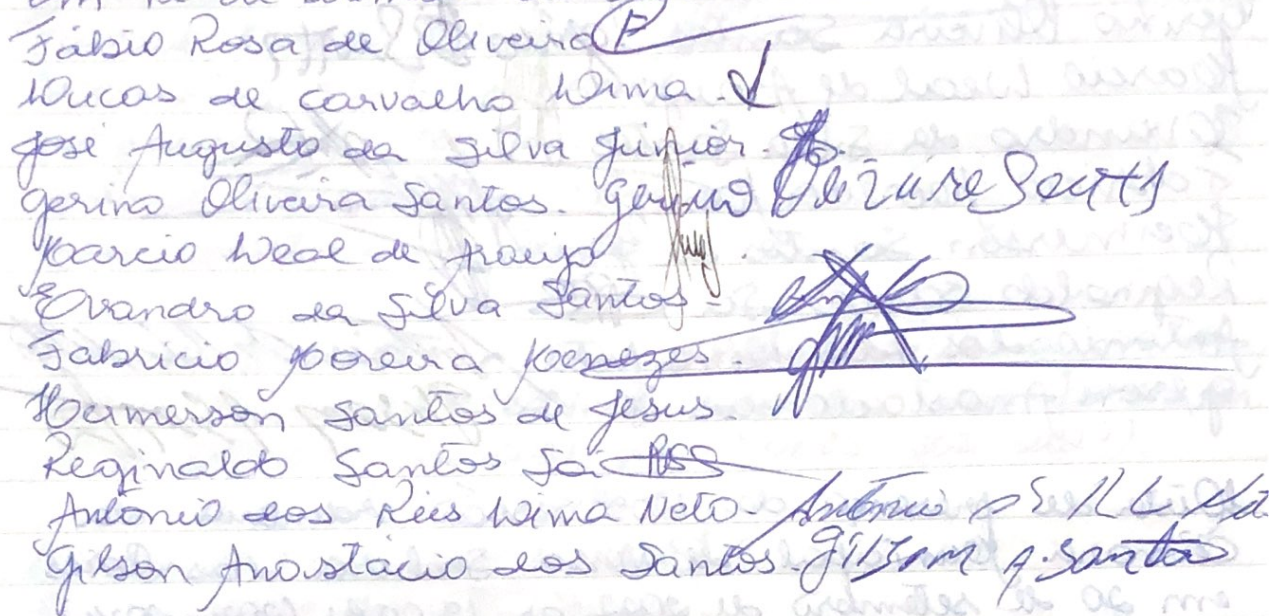 Fábio Rosa de Oliveira
Lucas de Carvalho Lima.
José Augusto da Silva Júnior.
Gerino Oliveira Santos. Gerino Oliveira Santos
Marcio Leal de Araujo
Evandro da Silva Santos-
Fabricio Moreira Menezes.
Hermerson Santos de Jesus.
Reginaldo Santos Sá RSS
Antônio dos Reis Lima Neto- Antônio
Gilson Anastácio dos Santos- Gilson A. Santos